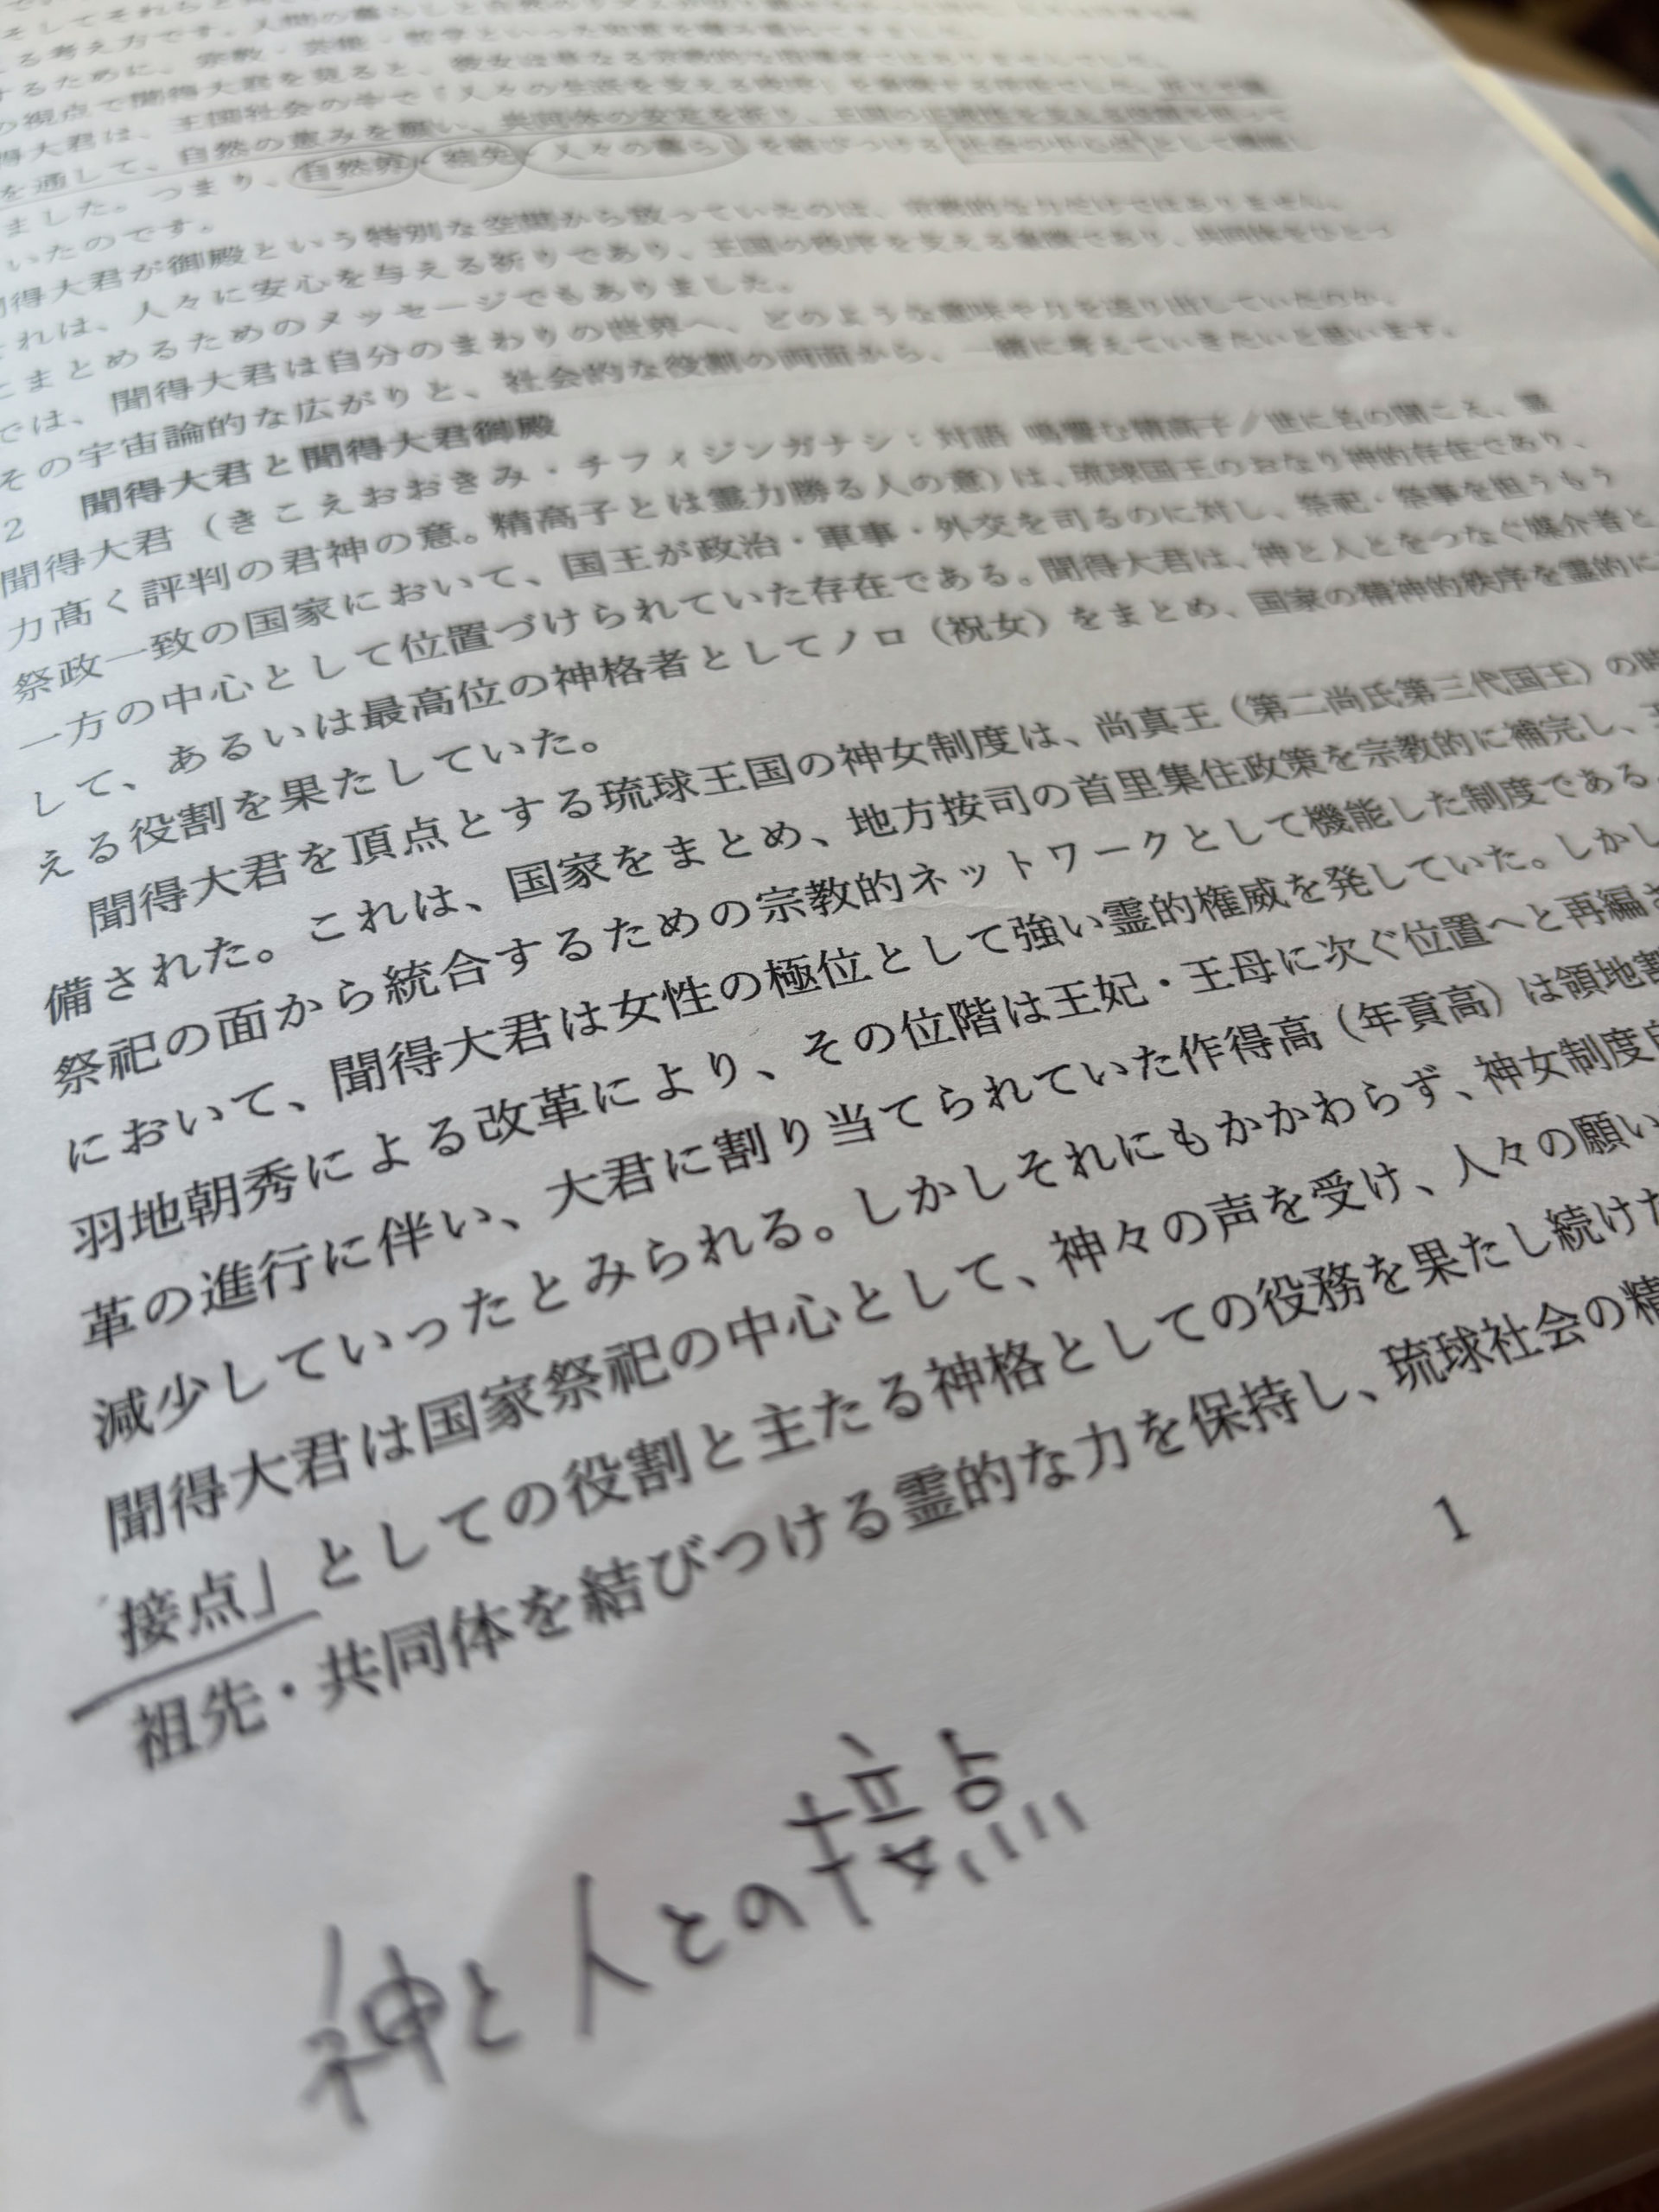 そしてそれらと
る考え方です。人間の暮らしと自然の
するために、宗教・芸能・哲学といった
の視点で聞得大君を見ると、彼女は単なる宗教的な指導者ではありませんでした。
得大君は、王国社会の中で「人々の生活を支える
を通して、自然の恵みを願い、共同体の安定を祈り、王国の正統性を支える役割を担って
ました。つまり、自然界・祖先・人々の暮らしを結びつける社会の中心点として機能し
いたのです。
聞得大君が御殿という特別な空間から放っていたのは、宗教的な力だけではありません。
これは、人々に安心を与える祈りであり、王国の秩序を支える象徴であり、共同体をひとつ
にまとめるためのメッセージでもありました。
では、聞得大君は自分のまわりの世界へ、どのような意味や力を送り出していたのか。
その宇宙論的な広がりと、社会的な役割の両面から、一緒に考えていきたいと思います。
2 聞得大君と聞得大君御殿
聞得大君（きこえおおきみ・チフィジンガナシ：対語 鳴響む精高子／世に名の聞こえ、霊
力高く評判の君神の意。精高子とは霊力勝る人の意）は、琉球国王のおなり神的存在であり、
祭政一致の国家において、国王が政治・軍事・外交を司るのに対し、祭祀・祭事を担うもう
一方の中心として位置づけられていた存在である。聞得大君は、神と人とをつなぐ媒介者と
して、あるいは最高位の神格者としてノロ（祝女）をまとめ、国家の精神的秩序を霊的に
える役割を果たしていた。
聞得大君を頂点とする琉球王国の神女制度は、尚真王（第二尚氏第三代国王）の時
備された。これは、国家をまとめ、地方按司の首里集住政策を宗教的に補完し、
祭祀の面から統合するための宗教的ネットワークとして機能した制度である。
において、聞得大君は女性の極位として強い霊的権威を発していた。しかし
羽地朝秀による改革により、その位階は王妃・王母に次ぐ位置へと再編さ
革の進行に伴い、大君に割り当てられていた作得高（年貢高）は領地
減少していったとみられる。しかしそれにもかかわらず、神女制度
聞得大君は国家祭祀の中心として、神々の声を受け、人々の願い
接点」としての役割と主たる神格としての役務を果たし続けた
祖先・共同体を結びつける霊的な力を保持し、琉球社会の精
1
神と人との接点